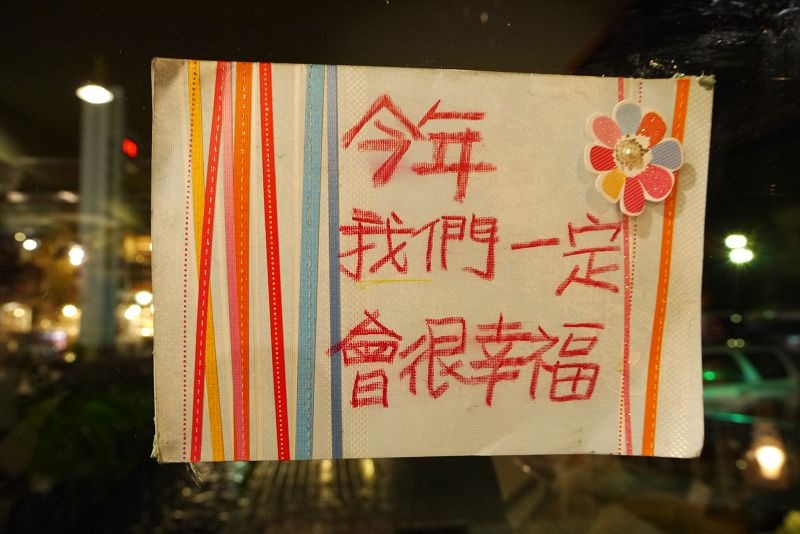 今年
我們一定
會很幸福